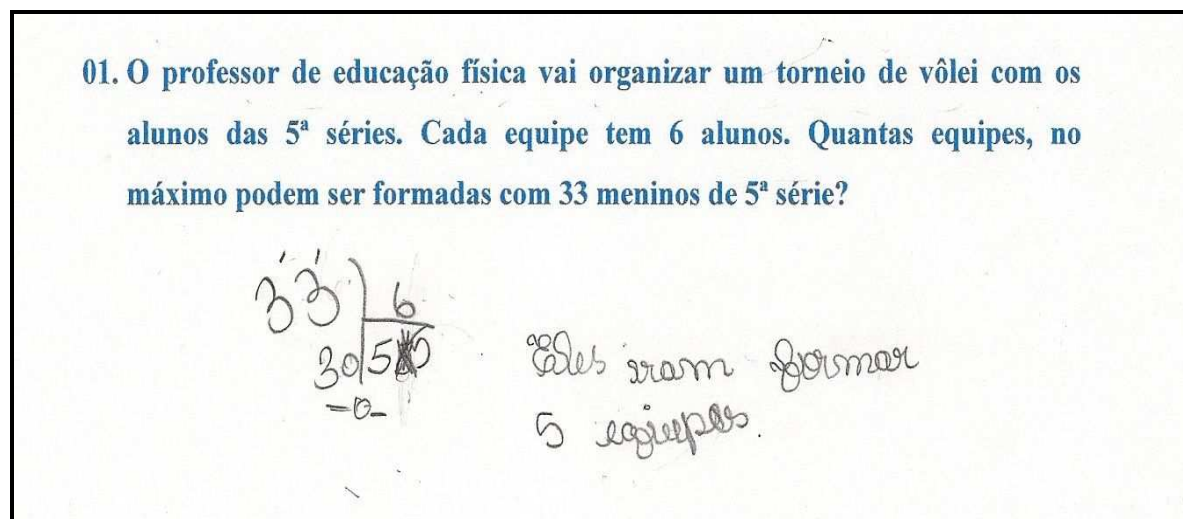 01. O professor de educação física vai organizar um torneio de vôlei com os
alunos das 5ª séries. Cada equipe tem 6 alunos. Quantas equipes, no
máximo podem ser formadas com 33 meninos de 5ª série?
33 6
30 5 5
-0-
Eles iram formar
5 equipes.